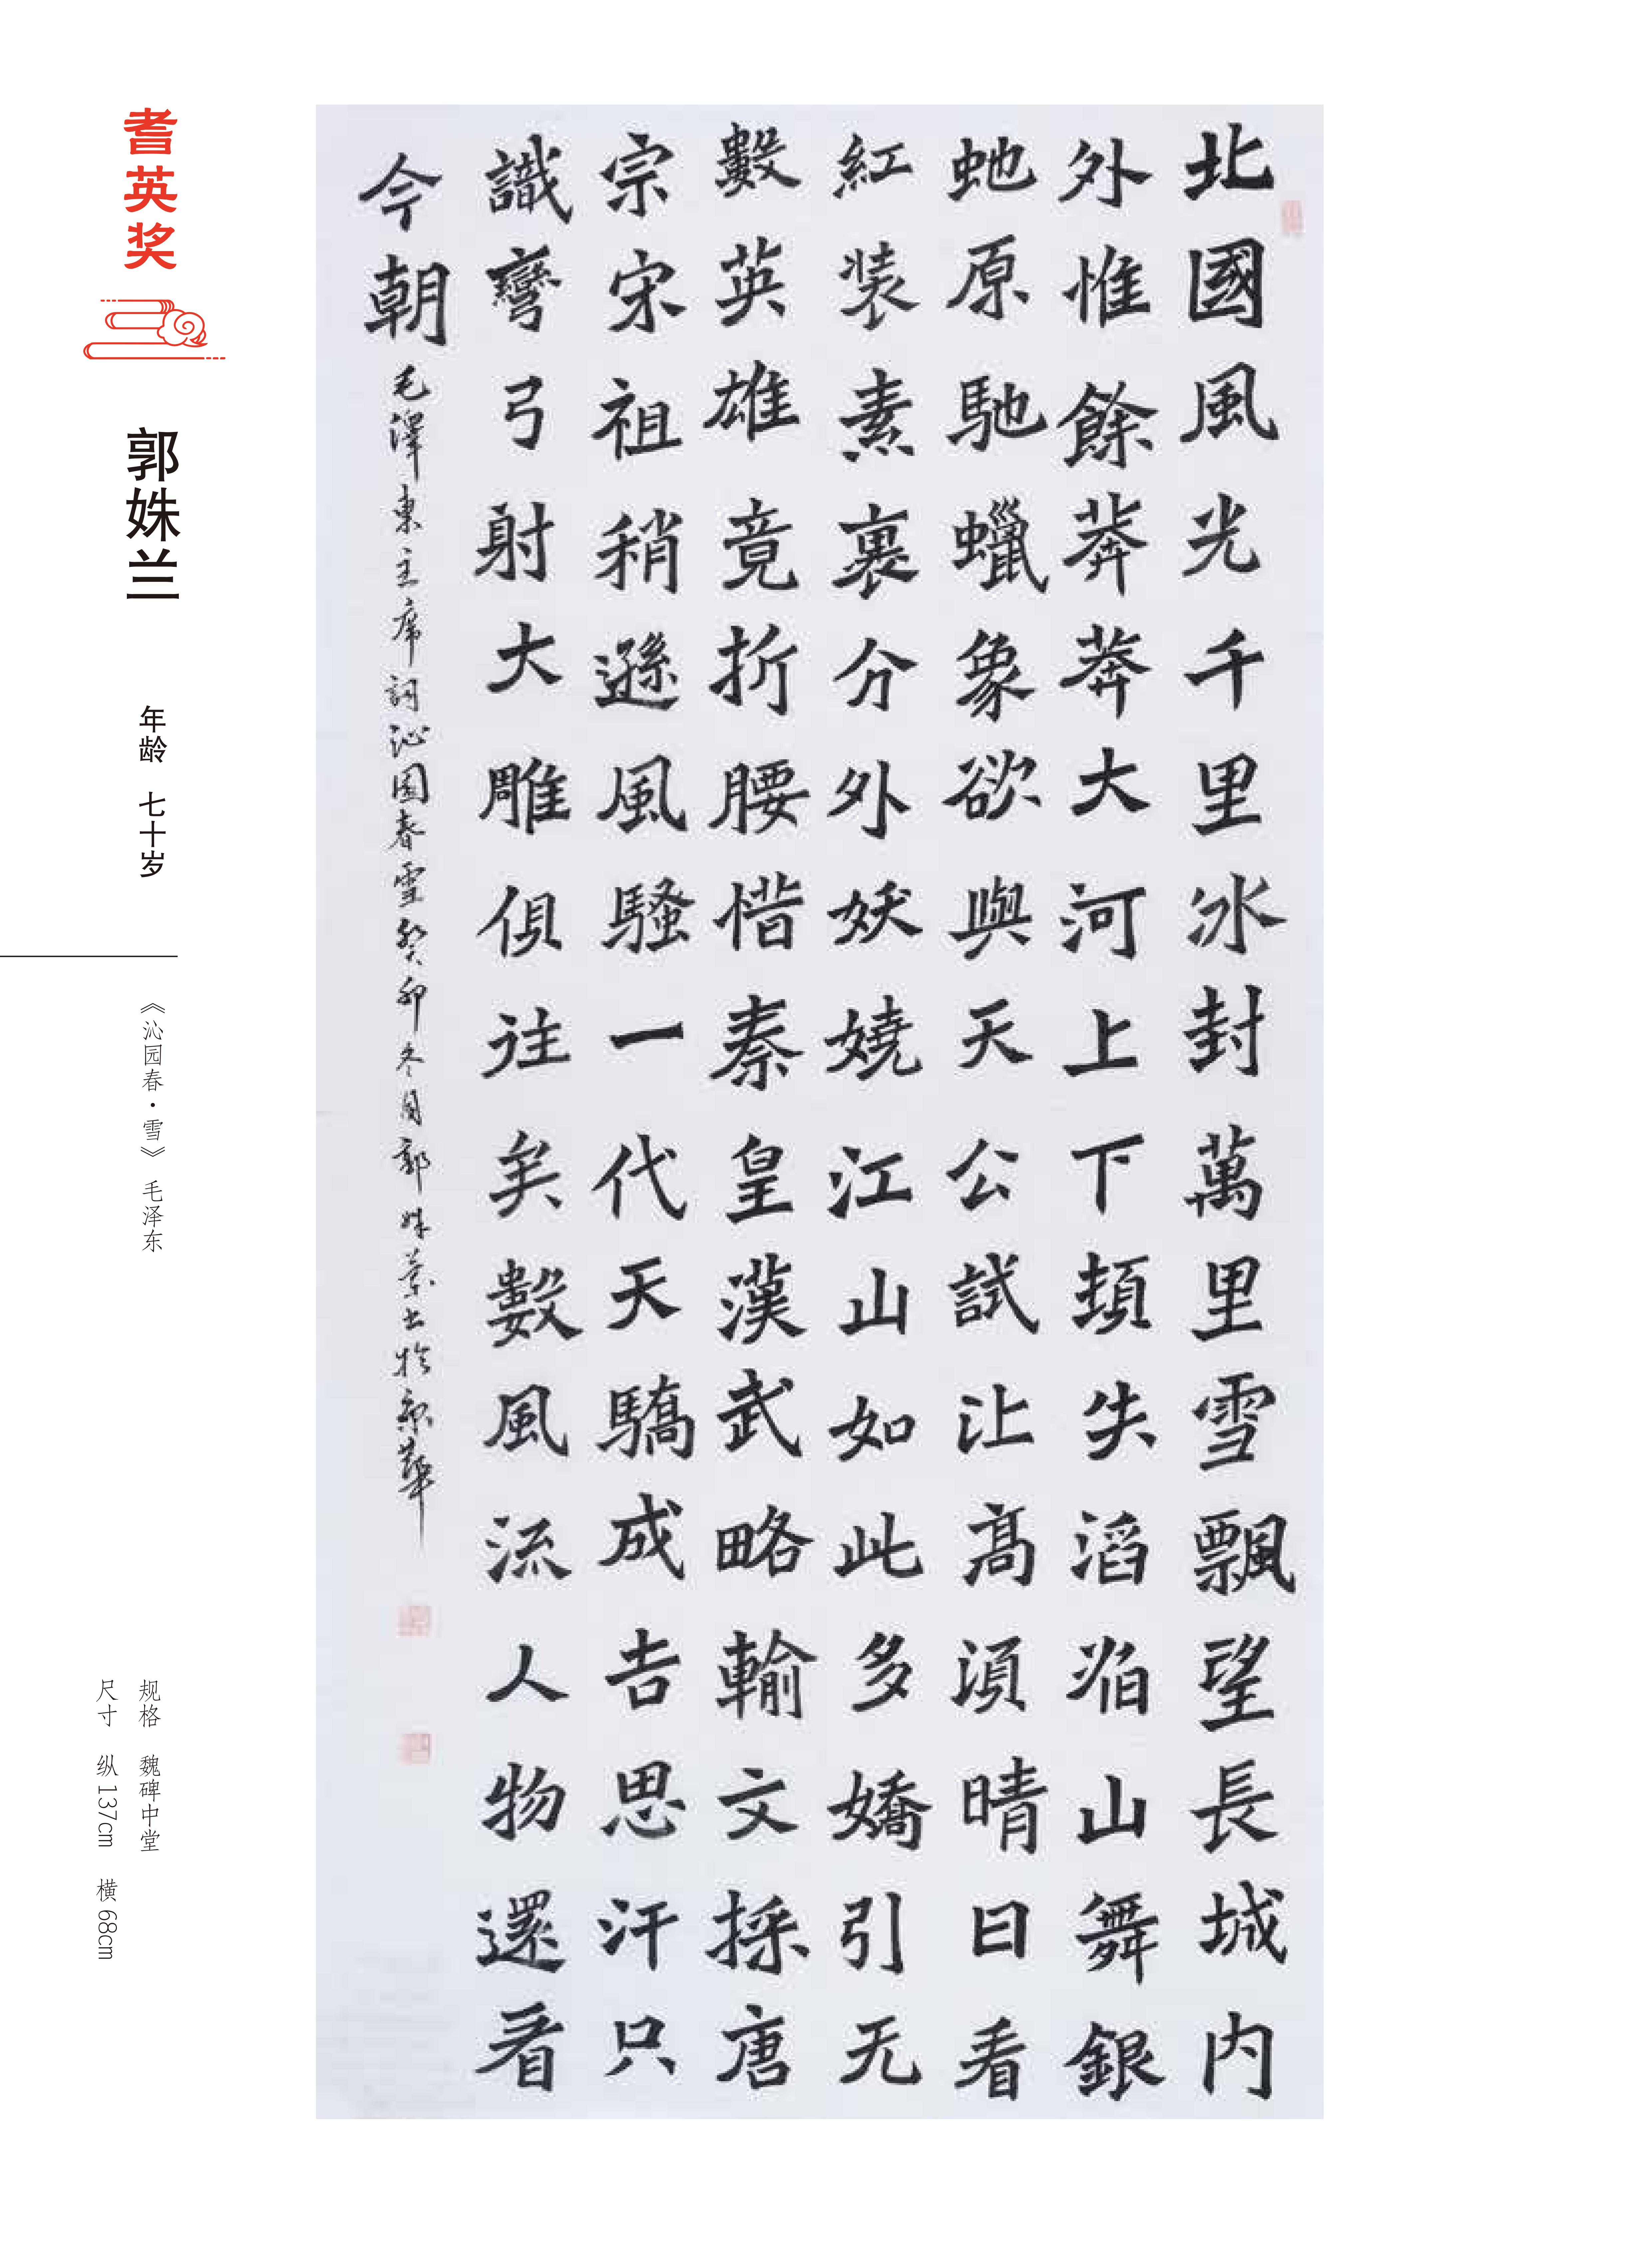 耆英奖
郭姝兰
年龄 七十岁
《沁园春·雪》毛泽东
规格 魏碑中堂
尺寸 纵137cm 横68cm
北國風光千里冰封萬里雪飄望長城内
外惟餘莽莽大河上下頓失滔滔山舞銀
虵原馳蠟象欲與天公試让高須晴日看
紅装素裹分外妖嬈江山如此多嬌引无
數英雄竟折腰惜秦皇漢武略輸文採唐
宗宋祖稍遜風騷一代天驕成吉思汗只
識彎弓射大雕俱往矣數風流人物還看
今朝
毛澤東主席詞沁園春雪癸卯冬月郭姝蘭书於京華